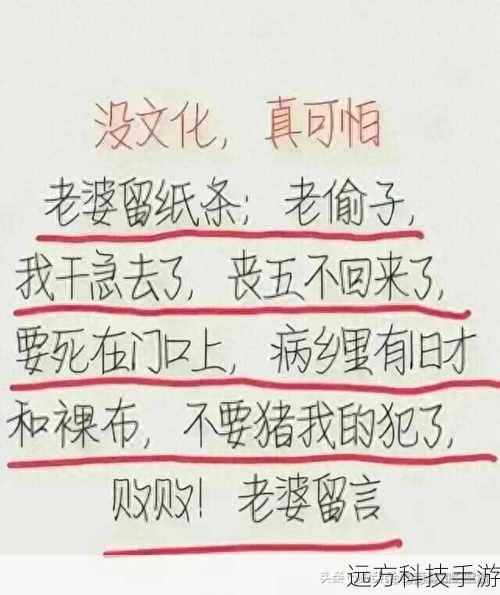 没文化，真可怕
老婆留纸条；老偷子，
我干急去了，丧五不回来了，
要死在门口上，病乡里有旧才
和裸布，不要猪我的犯了，
败败！老婆留言
远方科技手游